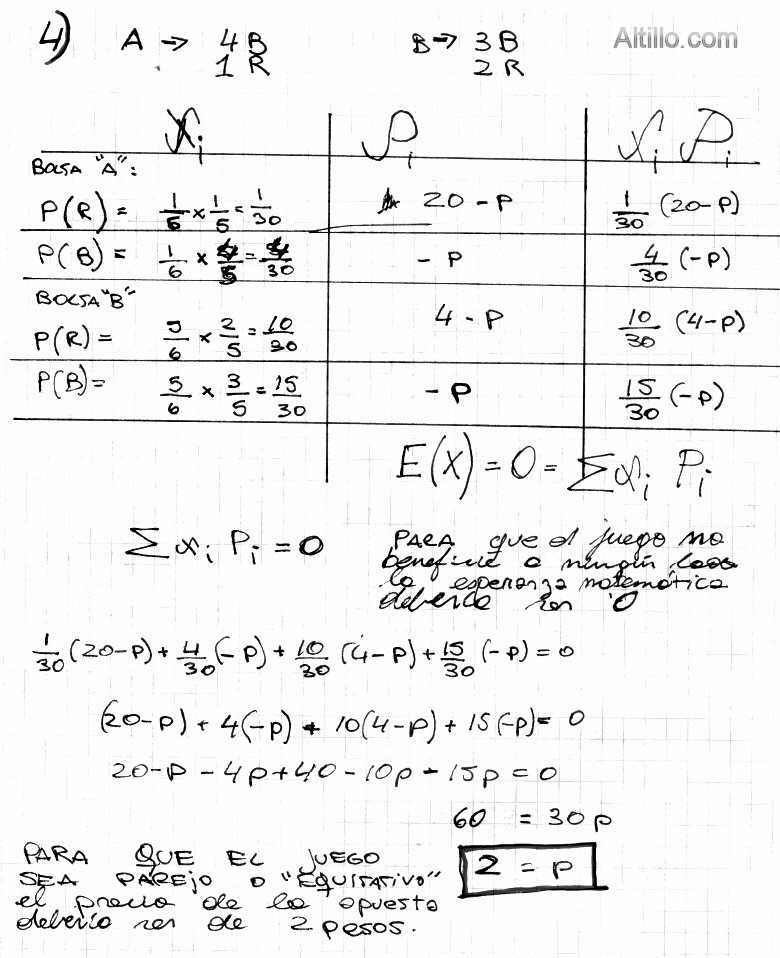 4) A → 4B B → 3B Altillo.com
1R 2R
Xi Pi Xi Pi
BOLSA "A":
P(R) = 1/6 x 1/5 = 1/30 20 - P 1/30 (20-P)
P(B) = 1/6 x 4/5 = 4/30 - P 4/30 (-P)
BOLSA "B"
P(R) = 5/6 x 2/5 = 10/30 4 - P 10/30 (4-P)
P(B) = 5/6 x 3/5 = 15/30 - P 15/30 (-P)
E(X) = 0 = ∑ xi Pi
∑ xi Pi = 0
PARA que el juego no
beneficie a ningún
la esperanza matemática
debería ser 0
1/30 (20-P) + 4/30 (-P) + 10/30 (4-P) + 15/30 (-P) = 0
(20-P) + 4(-P) + 10(4-P) + 15(-P) = 0
20-P - 4P + 40 - 10P - 15P = 0
60 = 30 P
2 = P
PARA QUE EL JUEGO
SEA PAREJO O "EQUITATIVO"
el precio de la apuesta
debería ser de 2 pesos.